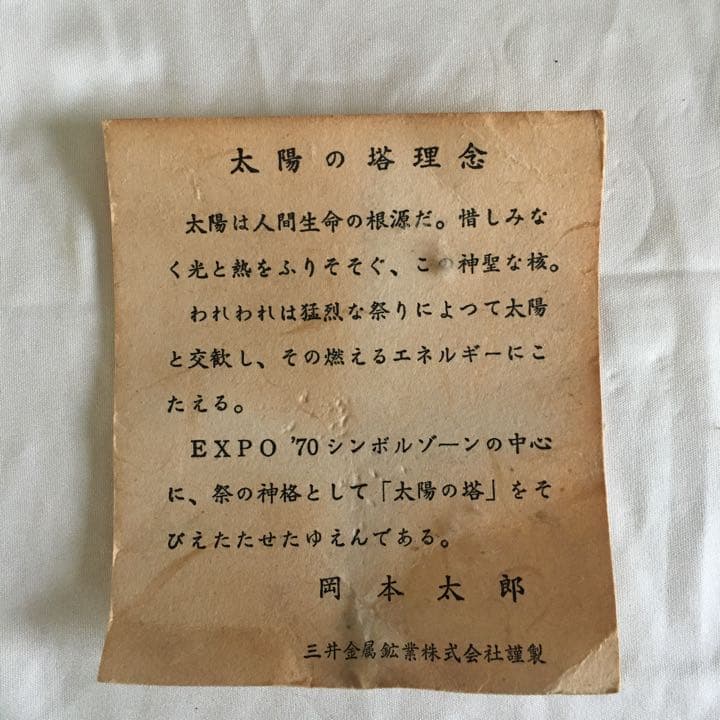 太陽の塔理念
太陽は人間生命の根源だ。惜しみな
く光と熱をふりそそぐ、この神聖な核。
われわれは猛烈な祭りによつて太陽
と交歓し、その燃えるエネルギーにこ
たえる。
EXPO '70シンボルゾーンの中心
に、祭の神格として「太陽の塔」をそ
びえたたせたゆえんである。
岡本太郎
三井金属鉱業株式会社謹製